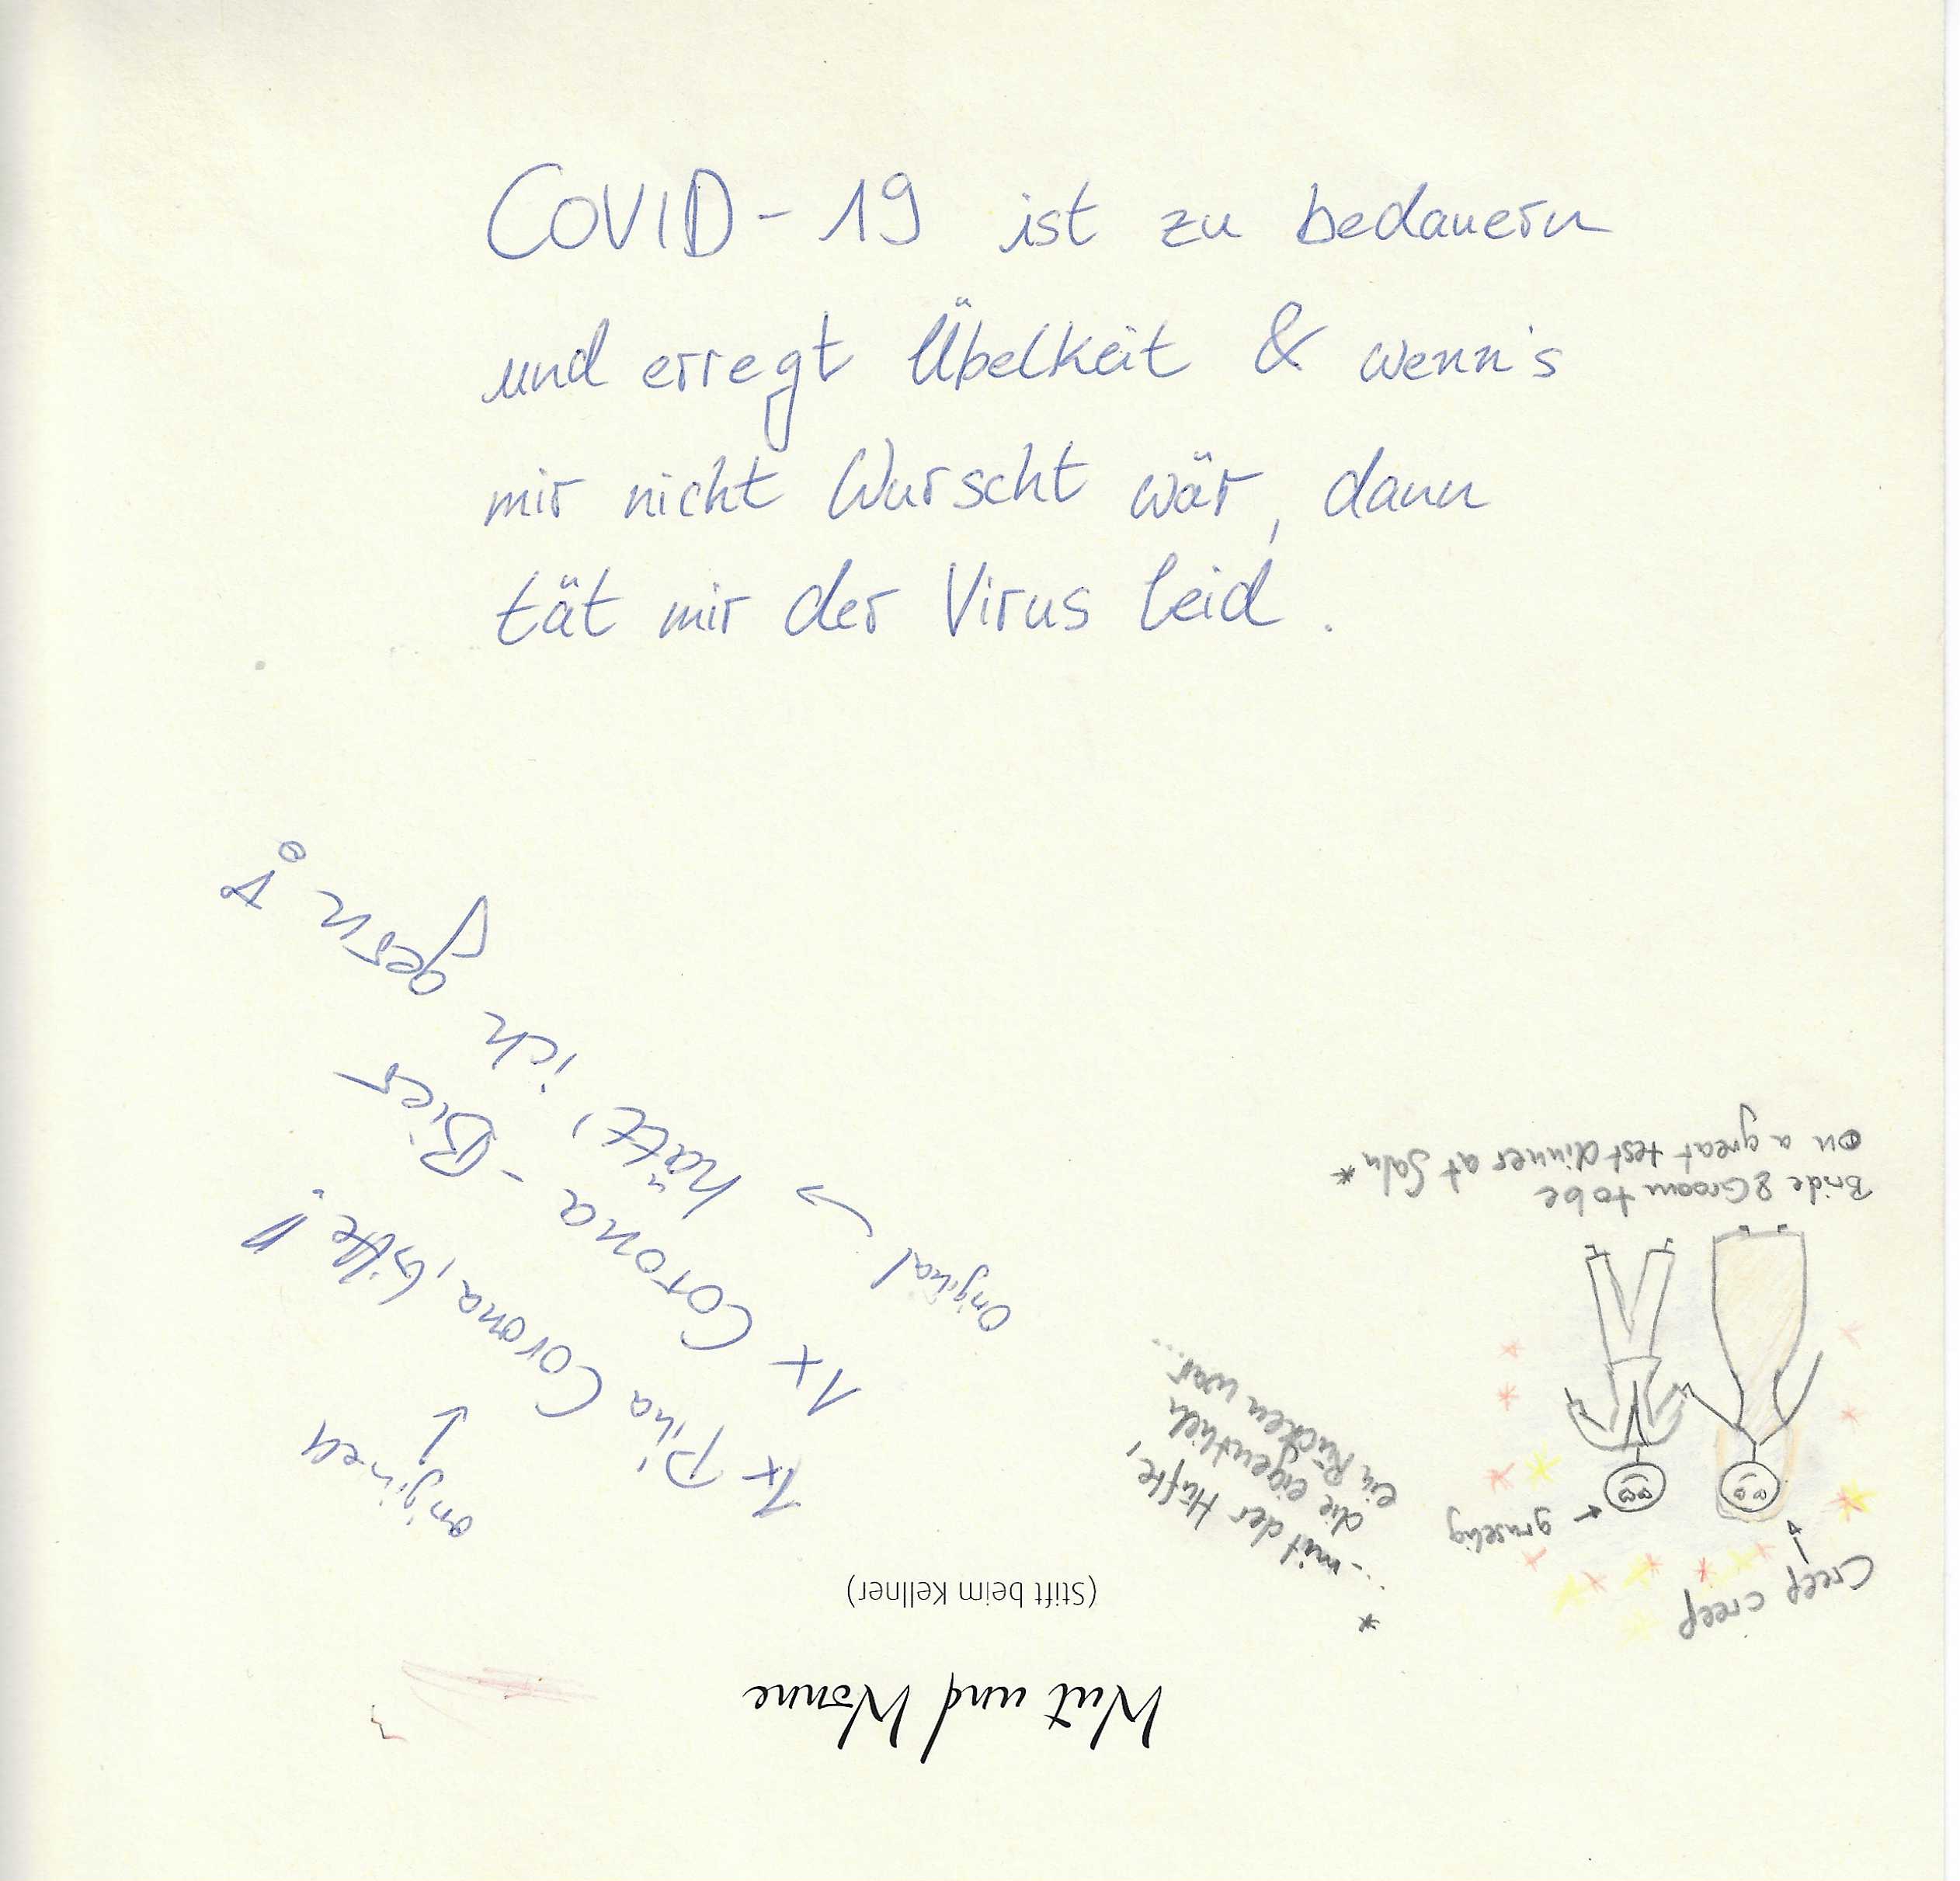 COVID-19 ist zu bedauern
und erregt Übelkeit & wenn's
mir nicht Wurscht wär, dann
tät mir der Virus leid.
Wut und Wonne
(Stift beim Kellner)
originell
1x Pina Corona, bitte!!
1x Corona-Bier
Original
hätt' ich gern
Creep creep
gruselig
Bride & Groom to be
on a great testdinner at *
*
... mit der Hüfte,
die eigentlich
ein Rücken war...